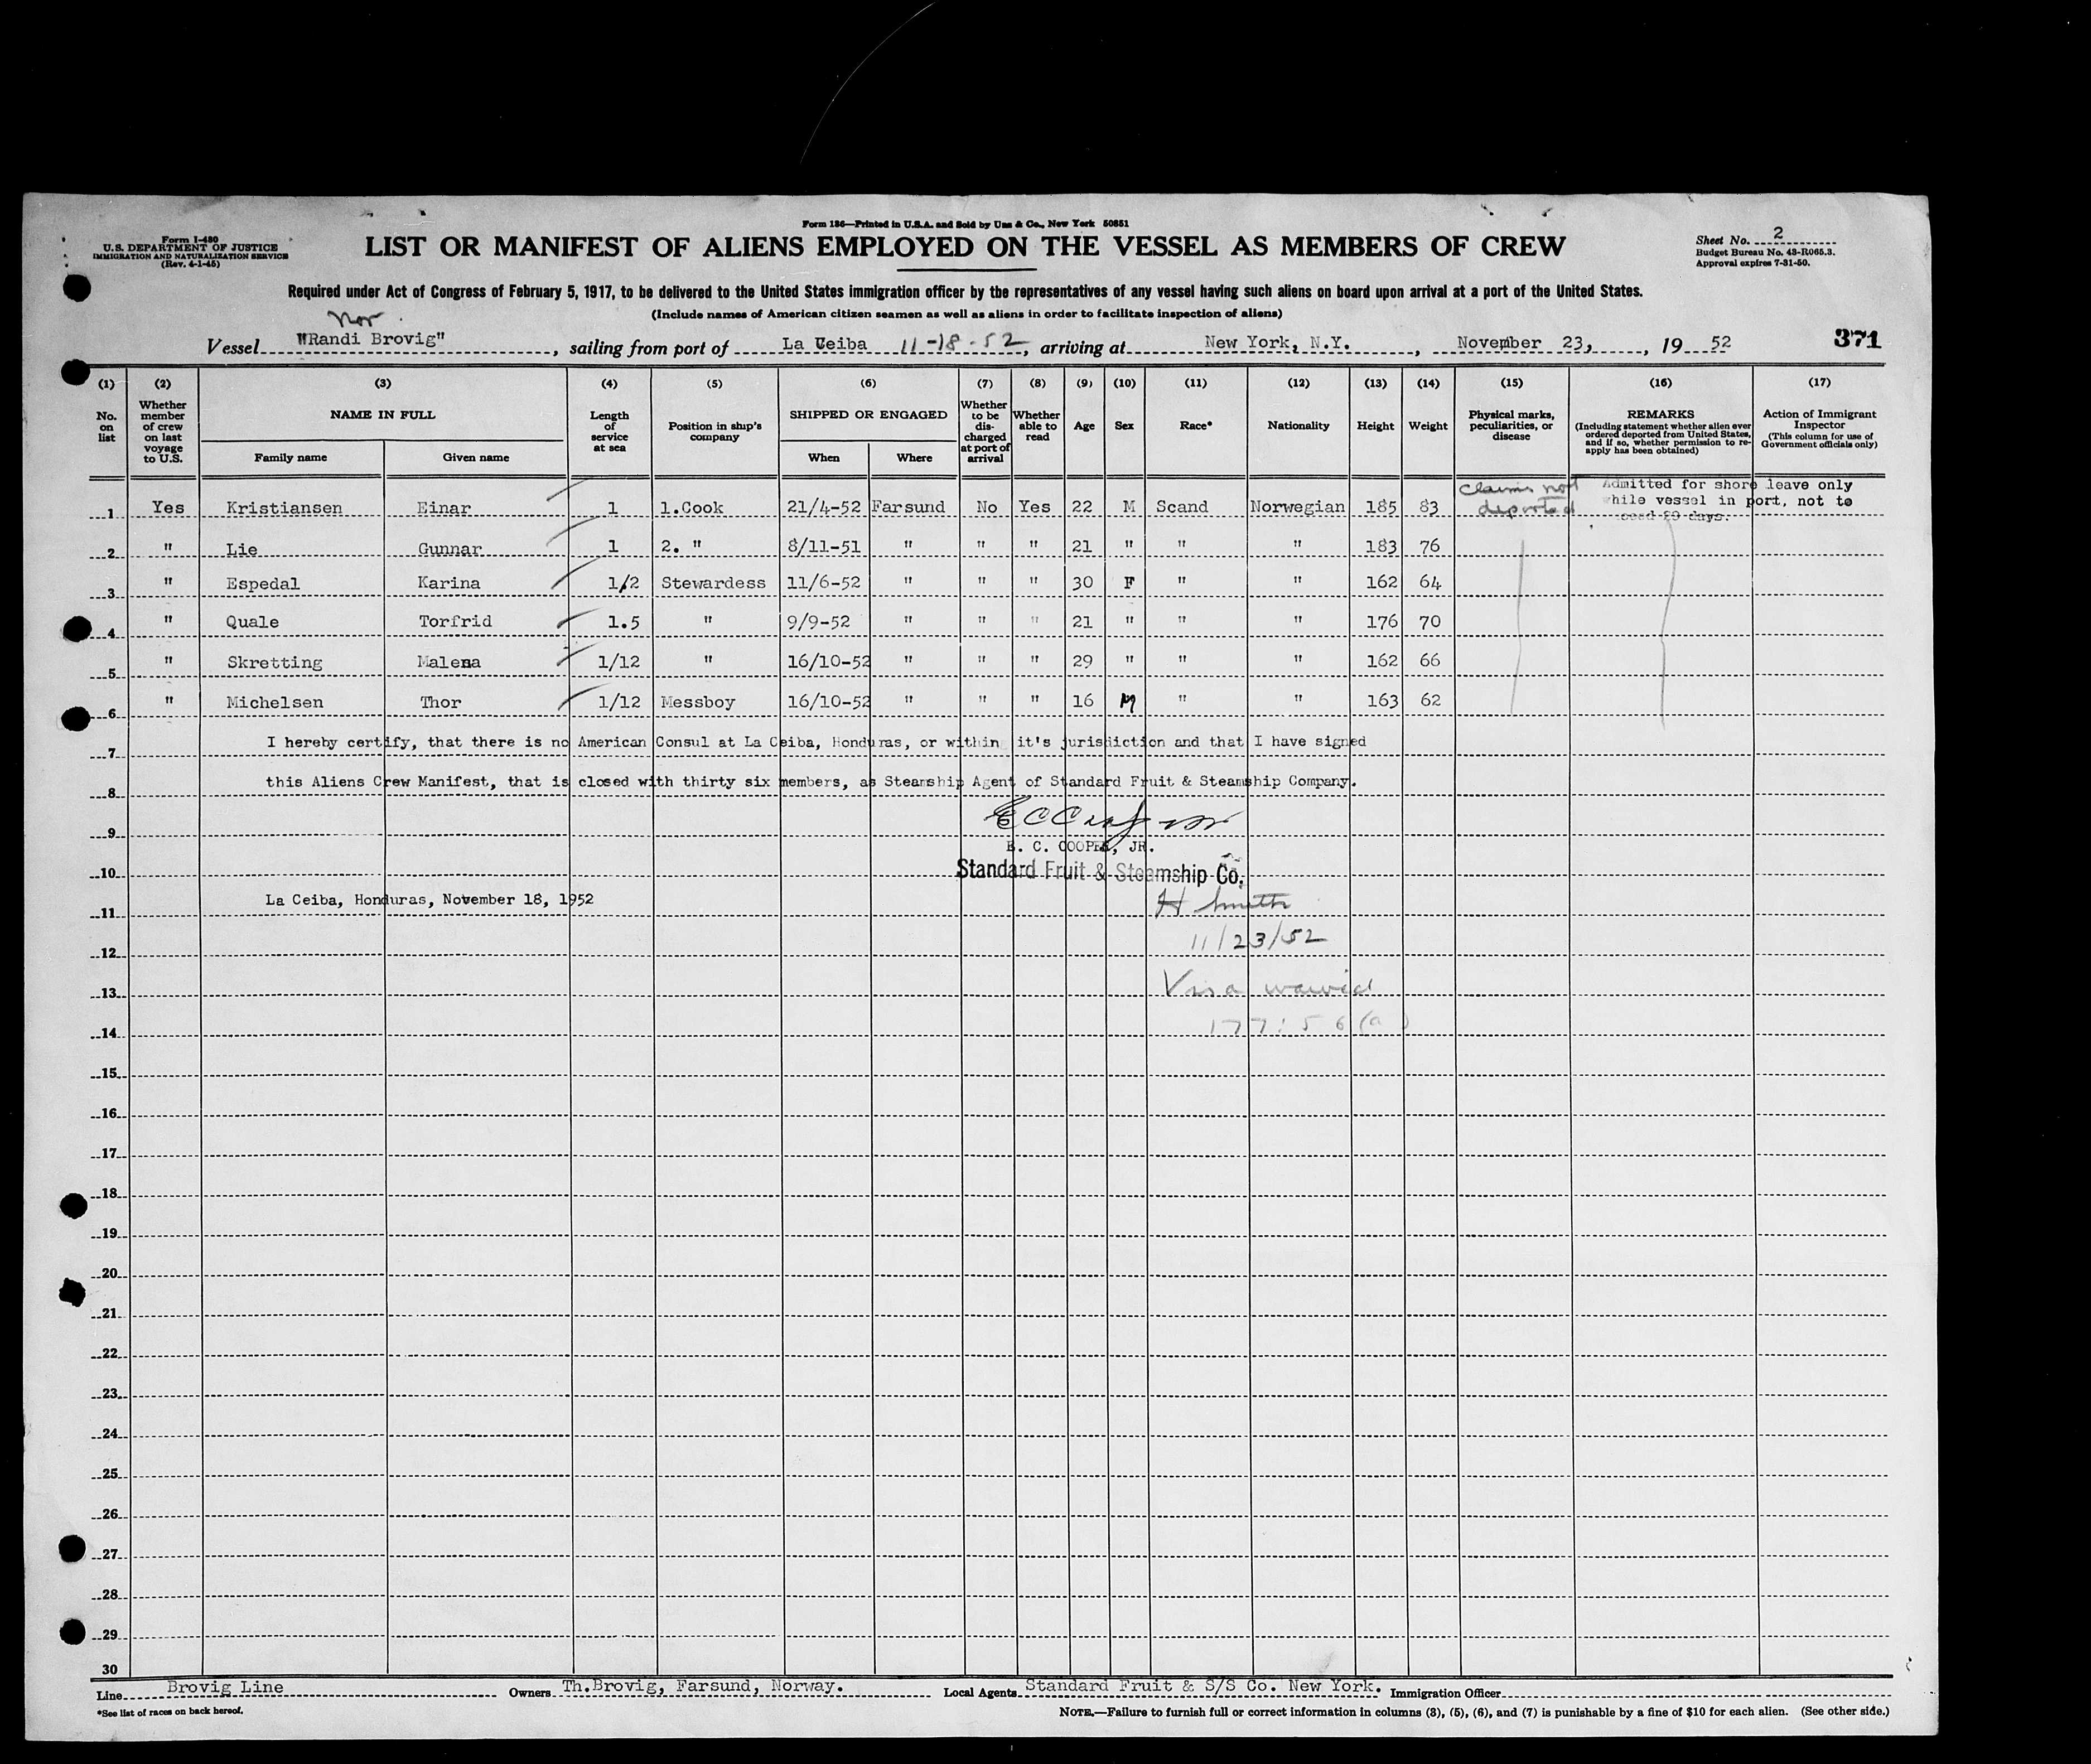 Form 136—Printed in U.S.A. and Sold by Unz & Co., New York 50851
Form I-480
U.S. DEPARTMENT OF JUSTICE
IMMIGRATION AND NATURALIZATION SERVICE
(Rev. 4-1-45)
LIST OR MANIFEST OF ALIENS EMPLOYED ON THE VESSEL AS MEMBERS OF CREW
Sheet No. 2
Budget Bureau No. 43-R065.3.
Approval expires 7-31-50.
Required under Act of Congress of February 5, 1917, to be delivered to the United States immigration officer by the representatives of any vessel having such aliens on board upon arrival at a port of the United States.
(Include names of American citizen seamen as well as aliens in order to facilitate inspection of aliens)
Nor
Vessel "Randi Brovig", sailing from port of La Ceiba 11-18-52, arriving at New York, N.Y., November 23, 19 52
371
(1) (2) (3) (4) (5) (6) (7) (8) (9) (10) (11) (12) (13) (14) (15) (16) (17)
No. on list
Whether member of crew on last voyage to U.S.
NAME IN FULL
Family name Given name
Length of service at sea
Position in ship's company
SHIPPED OR ENGAGED
When Where
Whether to be discharged at port of arrival
Whether able to read
Age
Sex
Race*
Nationality
Height
Weight
Physical marks, peculiarities, or disease
REMARKS
(Including statement whether alien ever ordered deported from United States, and if so, whether permission to reapply has been obtained)
Action of Immigrant Inspector
(This column for use of Government officials only)
claims not deported
Admitted for shore leave only
while vessel in port, not to
exceed 29 days.
1 Yes Kristiansen Einar 1 1.Cook 21/4-52 Farsund No Yes 22 M Scand Norwegian 185 83
2 " Lie Gunnar 1 2. " 8/11-51 " " " 21 " " " 183 76
3 " Espedal Karina 1/2 Stewardess 11/6-52 " " " 30 F " " 162 64
4 " Quale Torfrid 1.5 " 9/9-52 " " " 21 " " " 176 70
5 " Skretting Malena 1/12 " 16/10-52 " " " 29 " " " 162 66
6 " Michelsen Thor 1/12 Messboy 16/10-52 " " " 16 M " " 163 62
7 I hereby certify, that there is no American Consul at La Ceiba, Honduras, or within it's jurisdiction and that I have signed
8 this Aliens Crew Manifest, that is closed with thirty six members, as Steamship Agent of Standard Fruit & Steamship Company.
9
E. C. COOPER, JR.
10 Standard Fruit & Steamship Co.
11 La Ceiba, Honduras, November 18, 1952 H Smith
12 11/23/52
13 Visa waived
14 177:56(a)
15
16
17
18
19
20
21
22
23
24
25
26
27
28
29
30
Line Brovig Line Owners Th.Brovig, Farsund, Norway. Local Agents Standard Fruit & S/S Co. New York. Immigration Officer
*See list of races on back hereof.
NOTE.—Failure to furnish full or correct information in columns (3), (5), (6), and (7) is punishable by a fine of $10 for each alien. (See other side.)